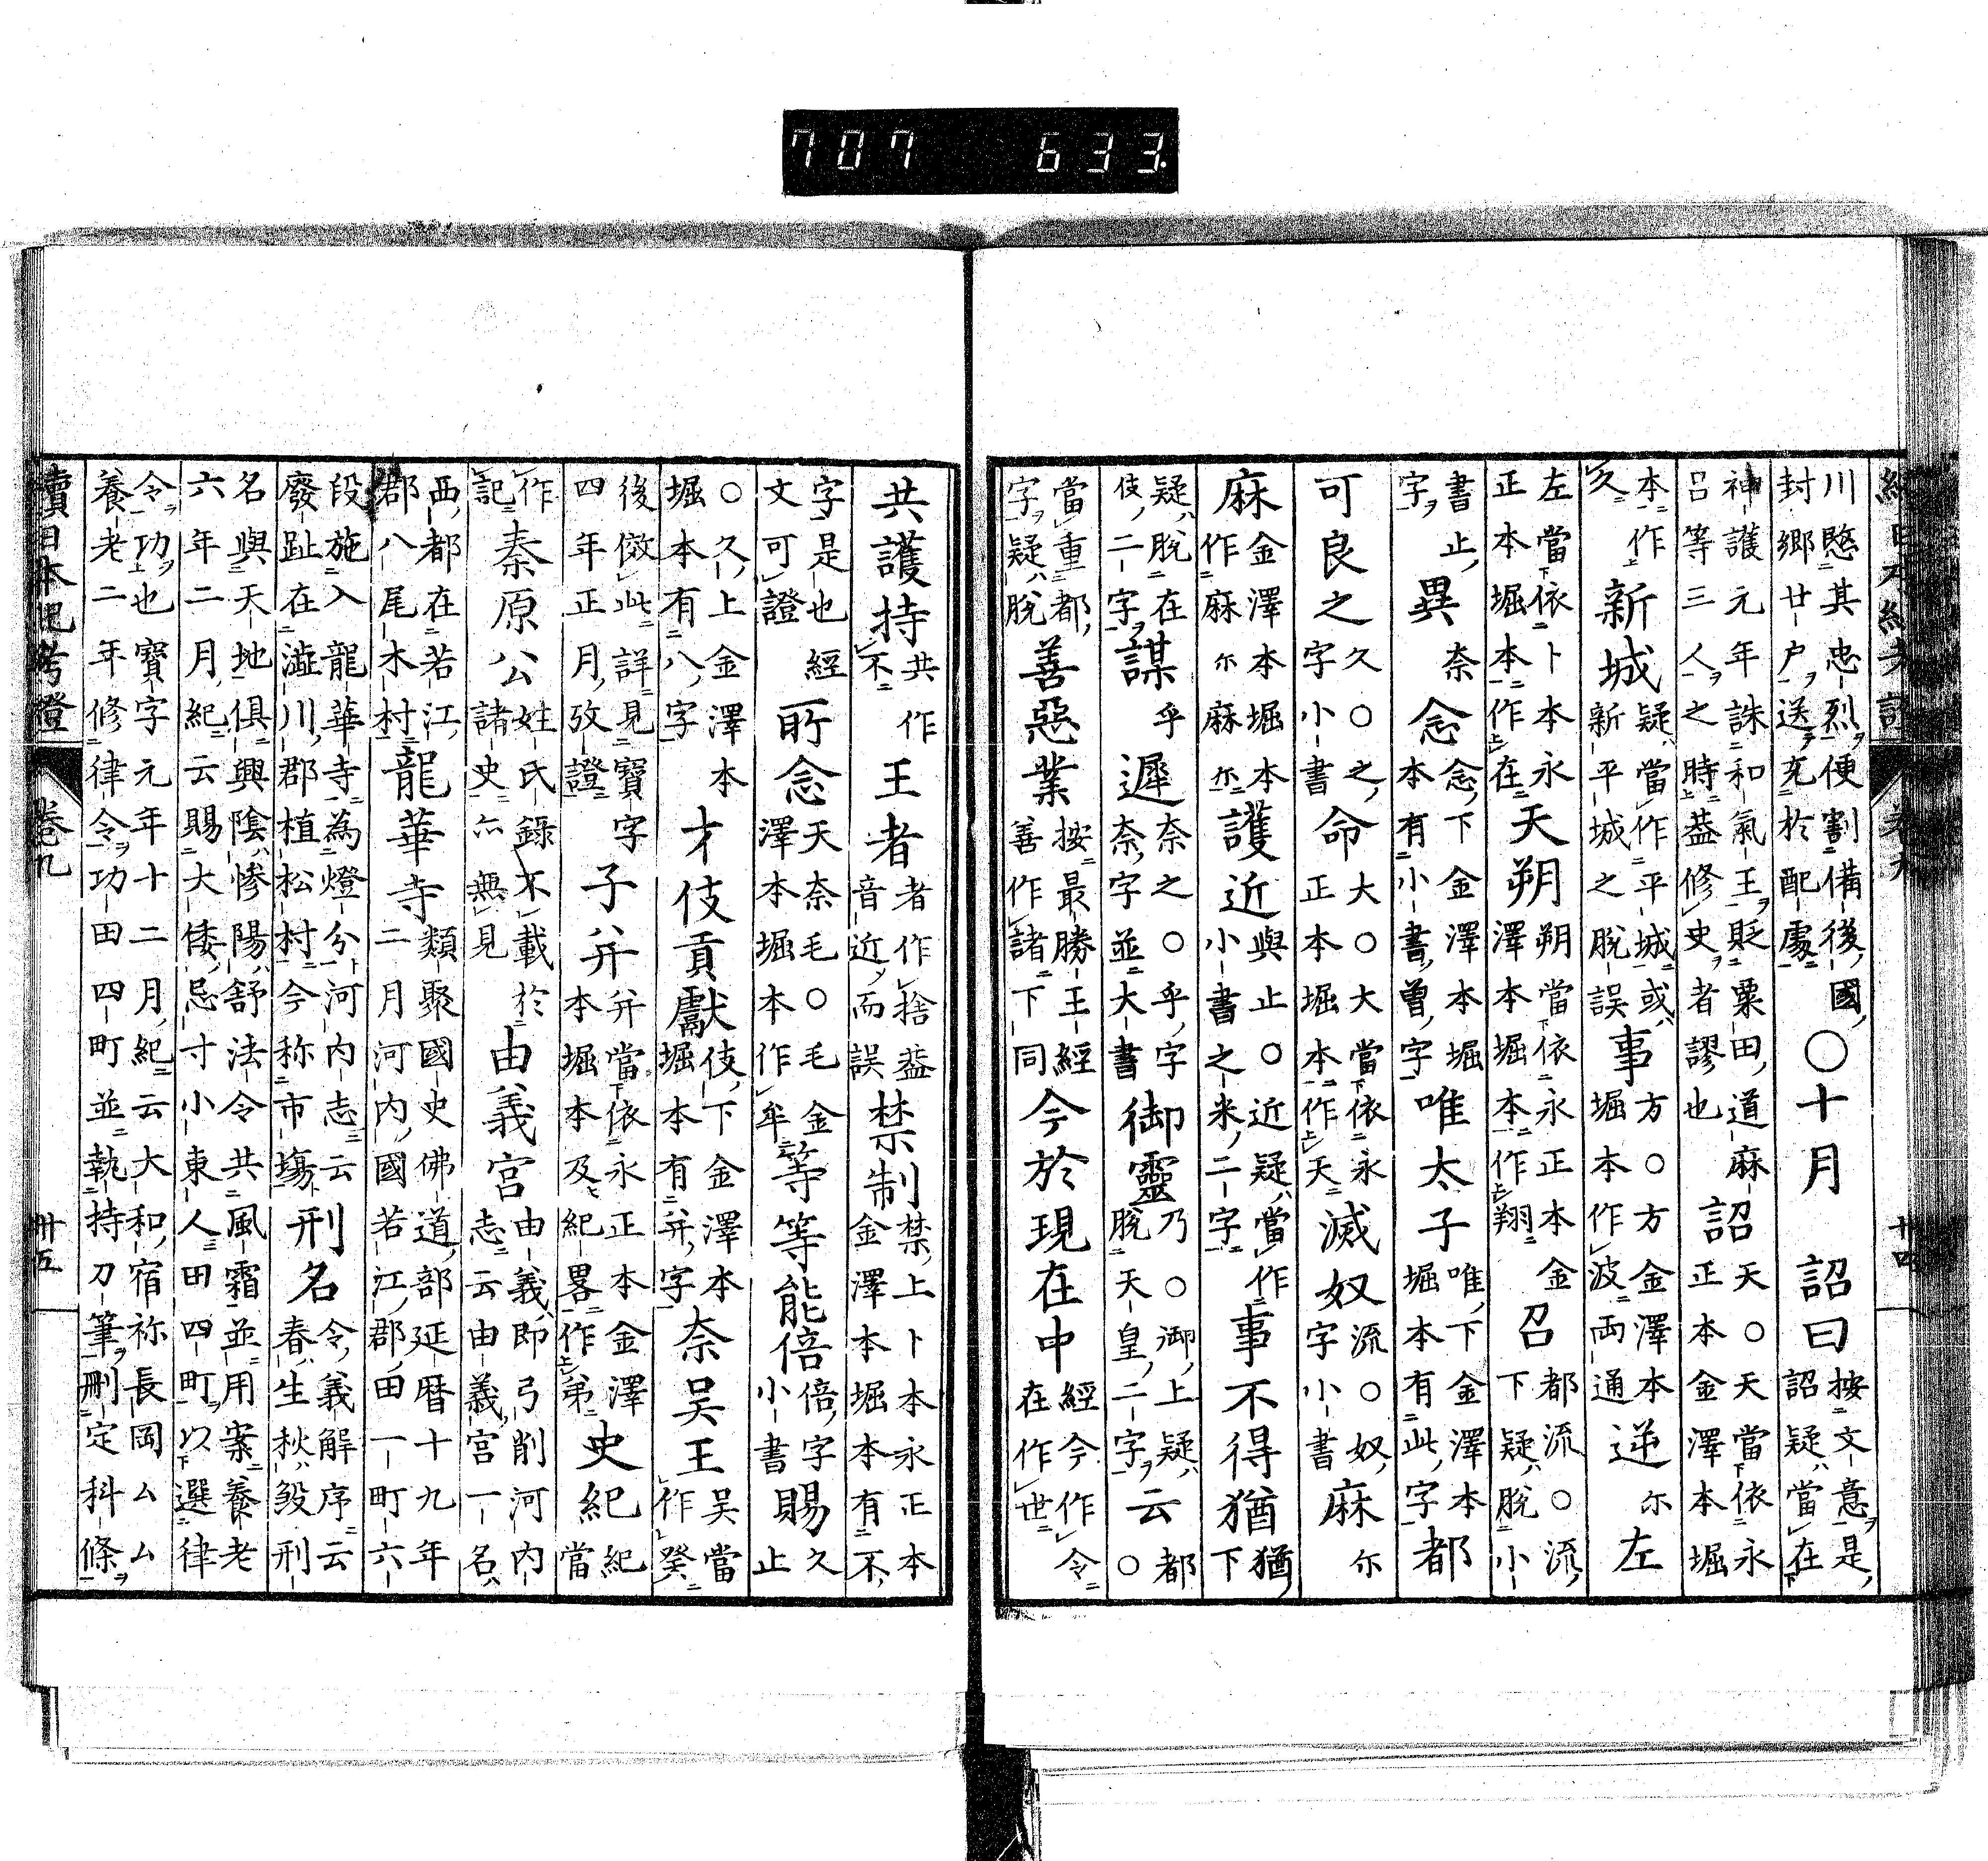 707 633
川愍其忠烈便割備後國〇十月詔曰按文意是
封鄉廿戶送充於配處詔疑當在
神護元年誅和氣王貶粟田道麻詔天〇天當依永
呂等三人之時蓋修史者謬也正本金澤本堀
本作新城疑當作平城或事方〇方金澤本逆尓左
久新平城之脫誤堀本作波兩通
左當依卜本永天朔朔當依永正本金召都流〇流
正本堀本作在澤本堀本作翔下疑脫小
書止異奈念念下金澤本堀唯太子唯下金澤本都
字本有小書曽字堀本有此字
可良之久〇之命大〇大當依永滅奴流〇奴麻尓
字小書正本堀本作天字小書
麻金澤本堀本護近與止〇近疑當作事不得猶猶
作麻尓麻尓小書之米二字下
疑脫在謀乎遲奈之〇乎字御靈乃〇御上疑云都
伎二字奈字並大書脫天皇二字〇
當重都善惡業按最勝王經今於現在中經今作令
字疑脫善作諸下同在作世
共護持共作王者者作捨蓋禁制禁上卜本永正本
不音近而誤金澤本堀本有不
字是也經所念天奈毛〇毛金等等能倍倍字賜久
文可證澤本堀本作牟小書止
〇久上金澤本才伎貢獻伎下金澤本奈吴王吴當
堀本有八字堀本有并字作癸
後倣此詳見寶字子八并并當依永正本金澤史紀紀
四年正月攷證本堀本及紀畧作弟當
作秦原公姓氏錄不載於由義宮由義即弓削河內
記諸史亦無見志云由義宮一名
西都在若江龍華寺類聚國史佛道部延曆十九年
郡八尾木村二月河內國若江郡田一町六
段施入龍華寺為燈分河內志云刑名令義解序云
廢趾在澁川郡植松村今称市塲春生秋殺刑
名與天地俱興陰慘陽舒法令共風霜並用案養老
六年二月紀云賜大倭忌寸小東人田四町以選律
令功也寶字元年十二月紀云大和宿祢長岡ムム
養老二年修律令功田四町並執持刀筆刪定科條
續日本紀考證
卷九
卅五